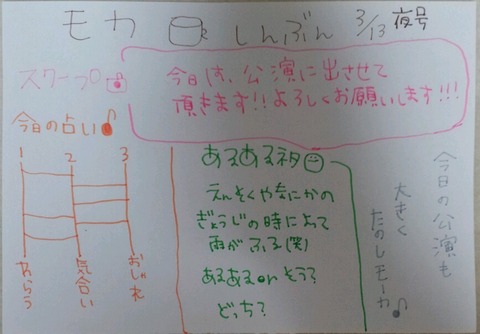 モカしんぶん 3/13 夜号
スクープ
今日は、公演に出させて
頂きます!!よろしくお願いします!!!
今日の占い
1 2 3
おらう
気合い
おしゃれ
あるあるネタ
えんそくやなにかの
ぎょうじの時によって
雨がふる(笑)
あるある or そう?
どっち?
今日の公演も
大きく
たのしモーカ